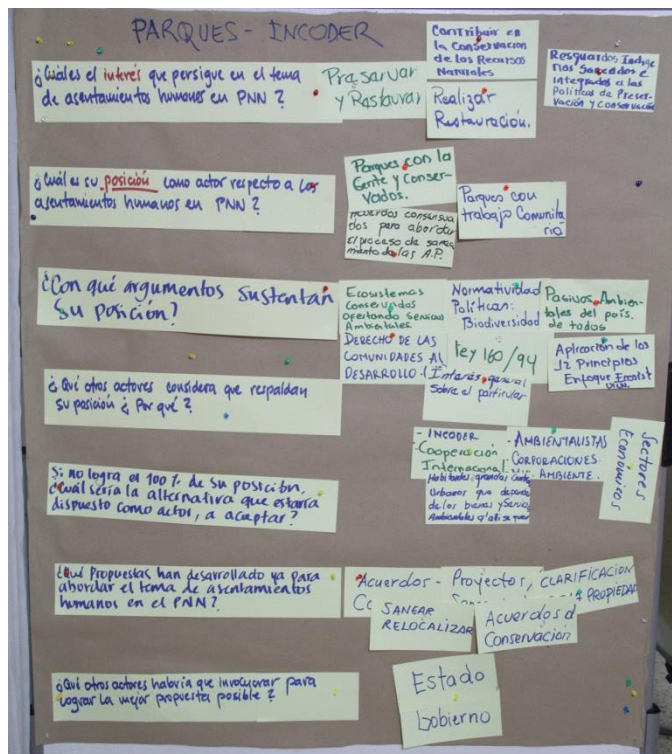 PARQUES - INCODER
¿Cuáles el interés que persigue en el tema
de asentamientos humanos en PNN?
Preservar
y Restaurar
Contribuir en
la Conservación
de los Recursos
Naturales
Realizar
Restauración.
Resguardos Indíge
nas Saneados e
integrados a las
Políticas de Preser-
vación y Conservación
¿Cuál es su posición como actor respecto a los
asentamientos humanos en PNN?
Parques con la
Gente y Conser-
vados.
Acuerdos consensua
dos para abordar
El proceso de sanea
miento de las A.P.
Parques con
trabajo Comunita
rio
¿Con qué argumentos sustentan
su posición?
Ecosistemas
Conservados
Ofertando Servicios
Ambientales
Normatividad
Políticas:
Biodiversidad
Pasivos Ambien-
tales del país.
de todos
DERECHO DE LAS
COMUNIDADES AL
DESARROLLO
Ley 160/94
Interés general
Sobre el particular
Aplicación de los
12 Principios
Enfoque Ecosist
¿Qué otros actores considera que respaldan
su posición ¿Por qué?
- INCODER
- Cooperación
Internacional
- AMBIENTALISTAS
CORPORACIONES
AMBIENTE.
Sectores
Económicos
Habitantes grandes
Urbanos que depende
de los bienes y Servic
Ambientales
Si no logra el 100% de su posición,
¿Cuál sería la alternativa que estaría
dispuesto como actor, a aceptar?
¿Qué Propuestas han desarrollado ya para
abordar el tema de asentamientos
humanos en el PNN?
Acuerdos -
Proyectos,
CLARIFICACION
PROPIEDAD
SANEAR
RELOCALIZAR
Acuerdos d
Conservación
¿Qué otros actores habría que involucrar para
lograr la mejor propuesta posible?
Estado
Gobierno